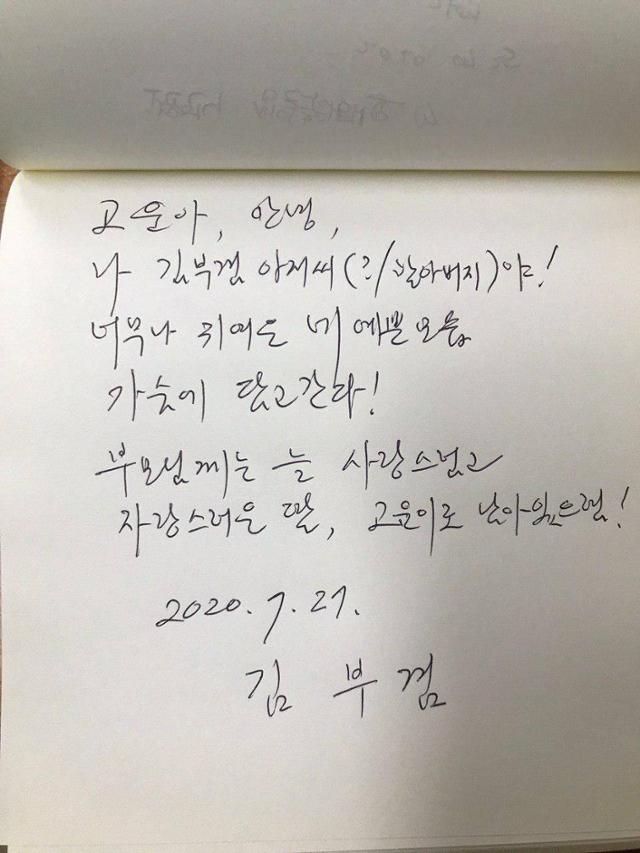 고운아, 안녕,
나 김부겸 아저씨(?/할아버지)야!
너무나 귀여운 네 예쁜 모습
가슴에 담고 간다!
부모님께는 늘 사랑스럽고
자랑스러운 딸, 고운이로 남아있으렴!
2020. 7. 27.
김 부 겸